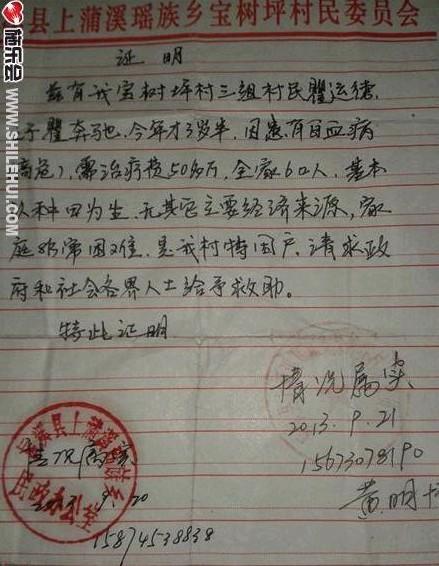 拾乐会
WWW.SHILEHUI.COM
县上蒲溪瑶族乡宝树坪村民委员会
证明
兹有我宝树坪村三组村民瞿运德
子瞿奔驰,今年才3岁半,因患有白血病
高危),需治疗费50多万,全家6口人,基本
以种田为生,无其它主要经济来源,家
庭非常困难,是我村特困户,请求政
府和社会各界人士给予救助。
特此证明
情况属实
2013.9.21
15673078190
黄明
县上蒲溪瑶族乡
9.20
15874538838